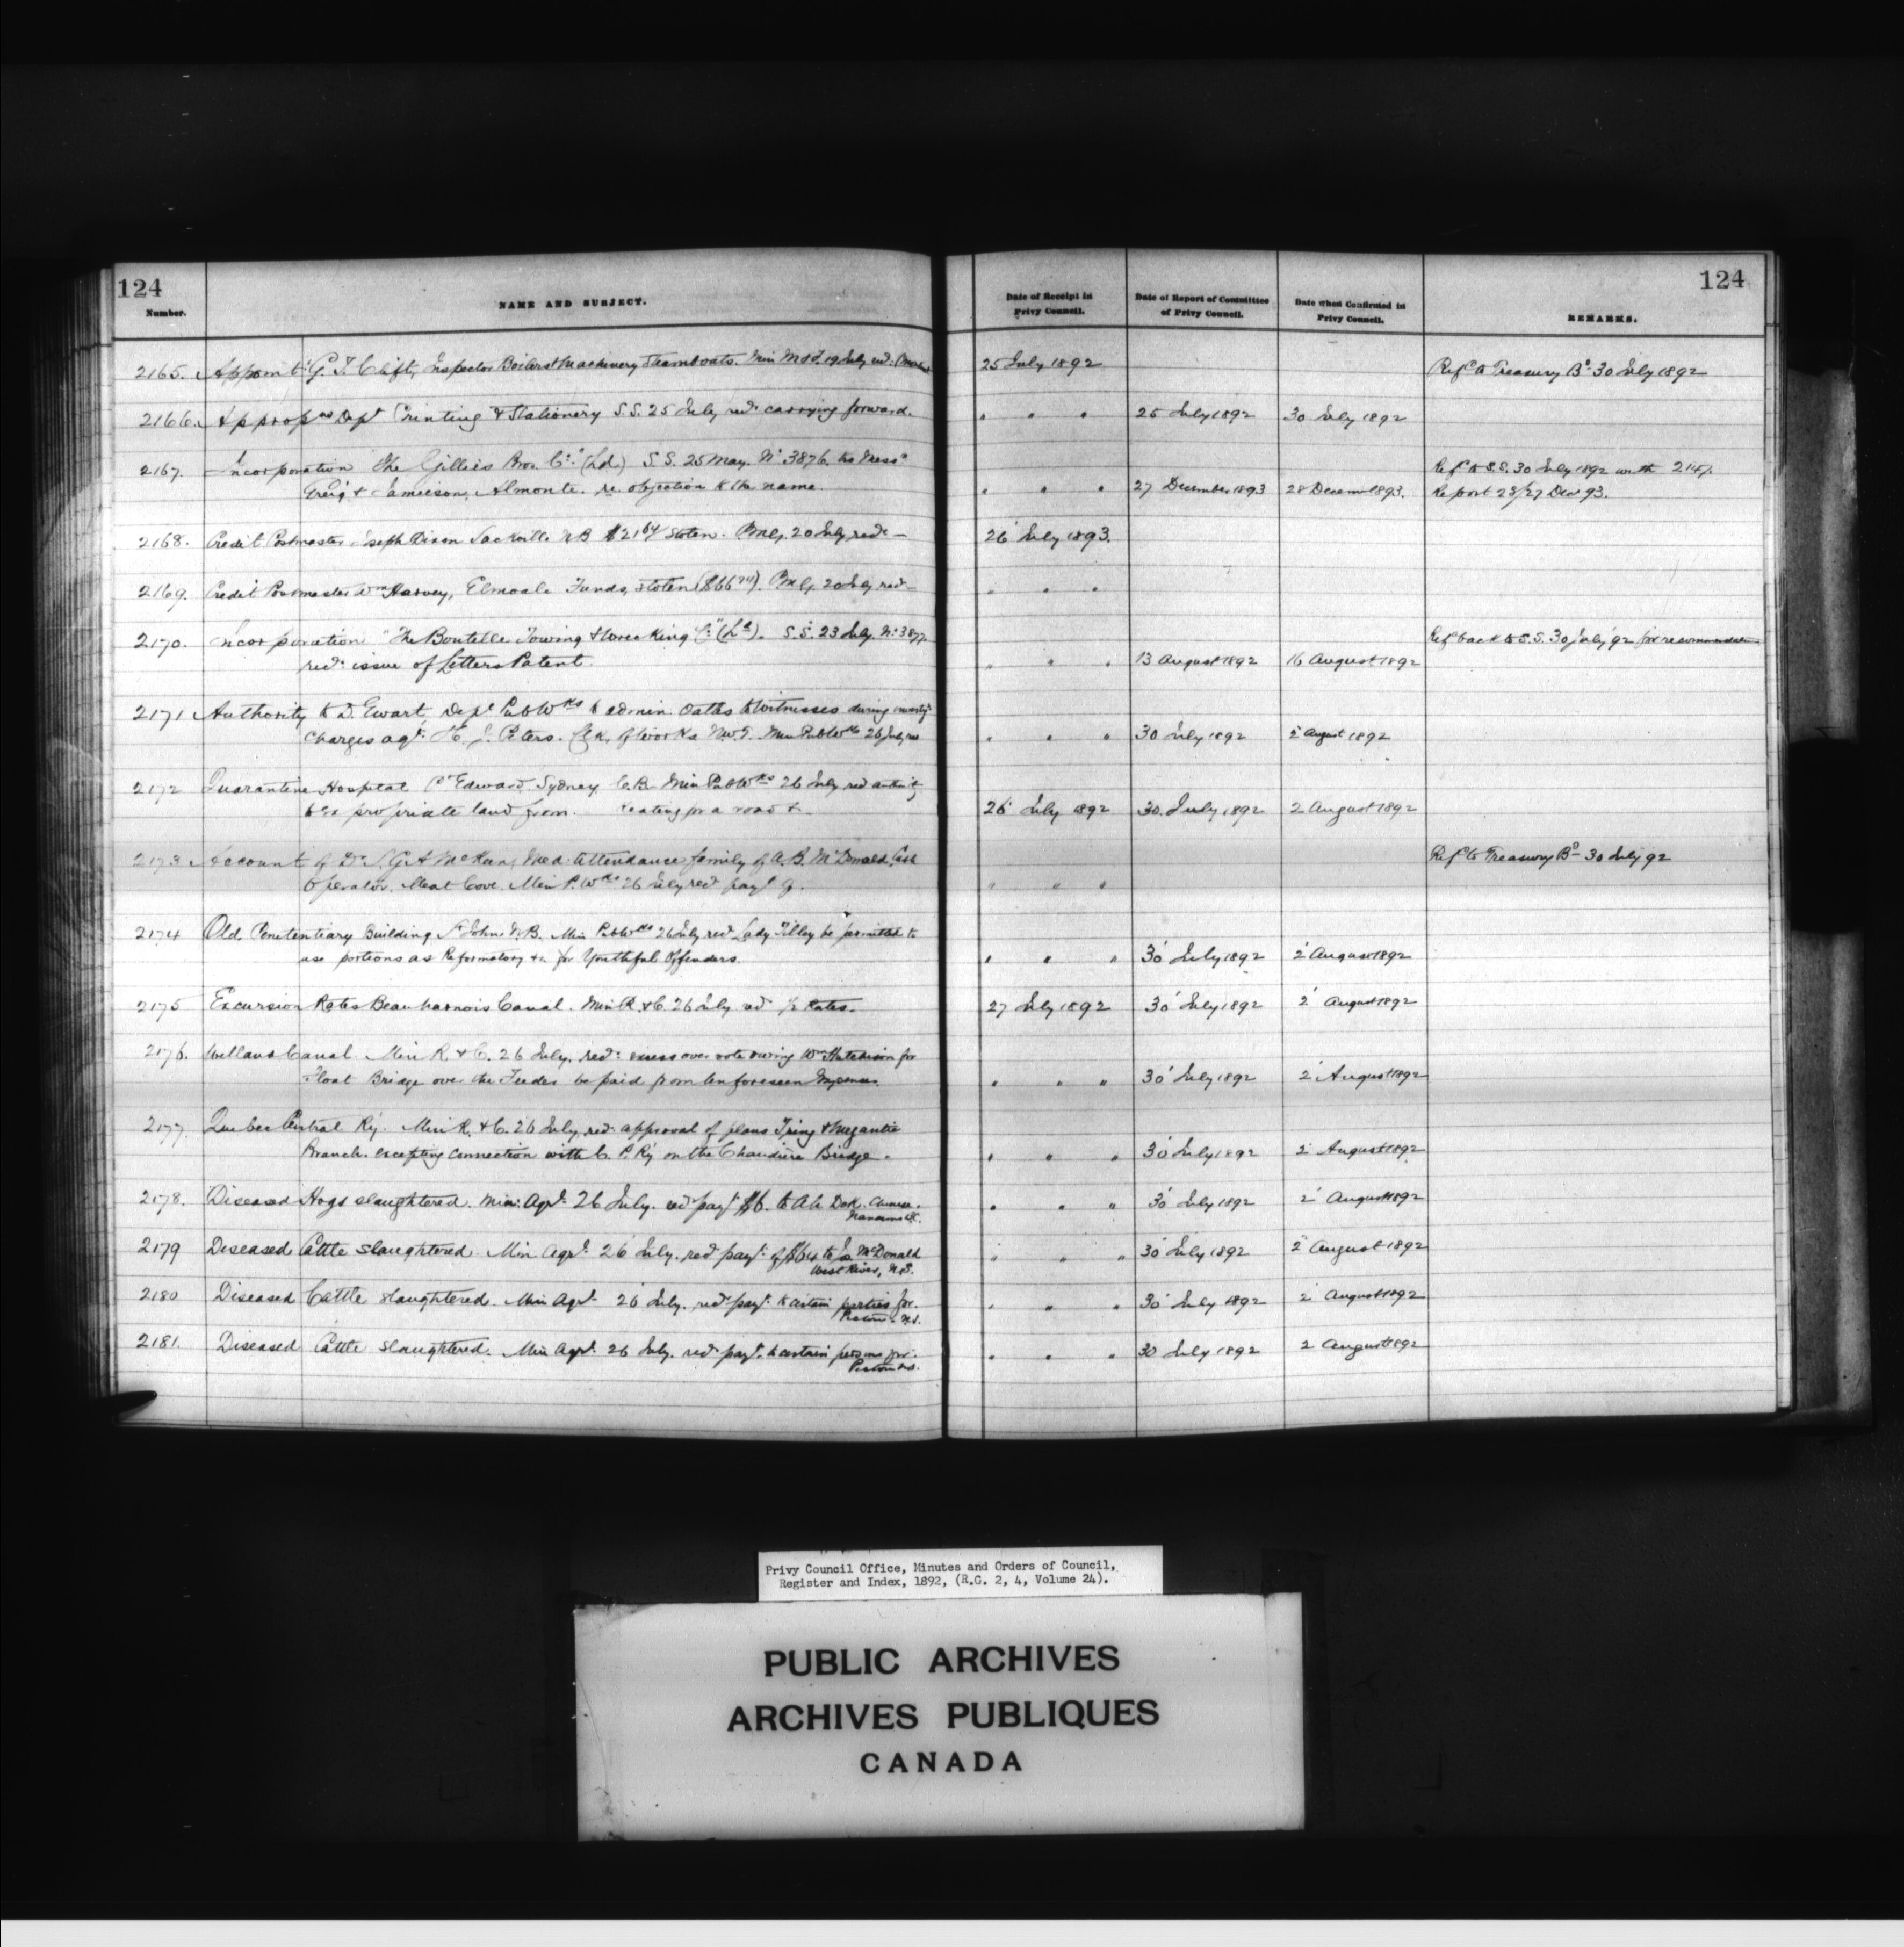 124
124
Number.
NAME AND SUBJECT.
Date of Receipt in Privy Council.
Date of Report of Committee of Privy Council.
Date when Confirmed in Privy Council.
REMARKS.
2165. Appointt G. T. Clift, Inspector Boilers & Machinery Steamboats. Min M & F. 19 July recd. 25 July 1892 Refd to Treasury Bd 30 July 1892
2166. Appropns Dept Printing & Stationery S.S. 25 July recd carrying forward. " " " 25 July 1892 30 July 1892
2167. Incorporation The Gillies Bros. Co. (Ld.) S.S. 25 May. No 3876. Messrs Refd to S.S. 30 July 1892 with 2147.
Greig & Jamieson, Almonte. re. objection to the name. " " " 27 December 1893 28 Decem 1893. Report 23/27 Dec 93.
2168. Credit Postmaster Joseph Dixon Sackville N B $21 64 stolen. PMG. 20 July recd — 26 July 1893.
2169. Credit Postmaster Wm Harvey, Elmvale Funds stolen ($66 ). PMG. 20 July recd — " " "
2170. Incorporation "The Boutelle Towing & Wrecking Co" (Ld). S.S. 23 July. No 3877. Refd back to S.S. 30 July '92 for recommendation
recd issue of Letters Patent. " " " 13 August 1892 16 August 1892
2171 Authority to D. Ewart, Dept Pub Wks to admin. Oaths to Witnesses during investign
charges agt. H. J. Peters. Clk. of Works N.W.T. Min Pub Wks 26 July rec " " " 30 July 1892 2 August 1892
2172 Quarantine Hospital Pt Edward, Sydney, C.B. Min Pub Wks 26 July recd authority
to expropriate land from Keating for a road &. 26 July 1892 30. July 1892 2 August 1892
2173 Account of Dr Med. attendance family of A. B. McDonald, Refd to Treasury Bd 30 July 92
Operator. Meat Cove. Min P. Wks 26 July recd payt of. " " "
2174 Old Penitentiary Building St John N.B. Min Pub Wks 26 July recd Lady Tilley be permitted to
use portions as Reformatory &c for Youthful Offenders. " " " 30 July 1892 2 August 1892
2175 Excursion Rates Beauharnois Canal. Min R. & C. 26 July recd ½ Rates. 27 July 1892 30 July 1892 2 August 1892
2176. Welland Canal. Min R. & C. 26 July. recd: excess over vote owing Wm Hutchison for
Float Bridge over the Feeder be paid from Unforeseen Expenses " " " 30 July 1892 2 August 1892
2177. Quebec Central Ry. Min R. & C. 26 July recd. approval of plans Tring & Megantic
Branch. excepting connection with C. P. Ry on the Chaudiere Bridge. " " " 30 July 1892 2 August 1892
2178. Diseased Hogs slaughtered. Min: Agr. 26 July. recd payt $6. to Ah Dok. Chinese. " " " 30 July 1892 2 August 1892
Nanaimo BC.
2179 Diseased Cattle slaughtered. Min Agr. 26 July. recd payt. of $64 to McDonald " " " 30 July 1892 2 August 1892
West River, N.S.
2180 Diseased Cattle slaughtered. Min Agr. 26 July. recd payt. to certain parties for. " " " 30 July 1892 2 August 1892
Pictou N.S.
2181. Diseased Cattle slaughtered. Min Agr. 26 July. recd payt. to certain persons for. " " " 30 July 1892 2 August 1892
Pictou N.S.
Privy Council Office, Minutes and Orders of Council,
Register and Index, 1892, (R.G. 2, 4, Volume 24).
PUBLIC ARCHIVES
ARCHIVES PUBLIQUES
CANADA